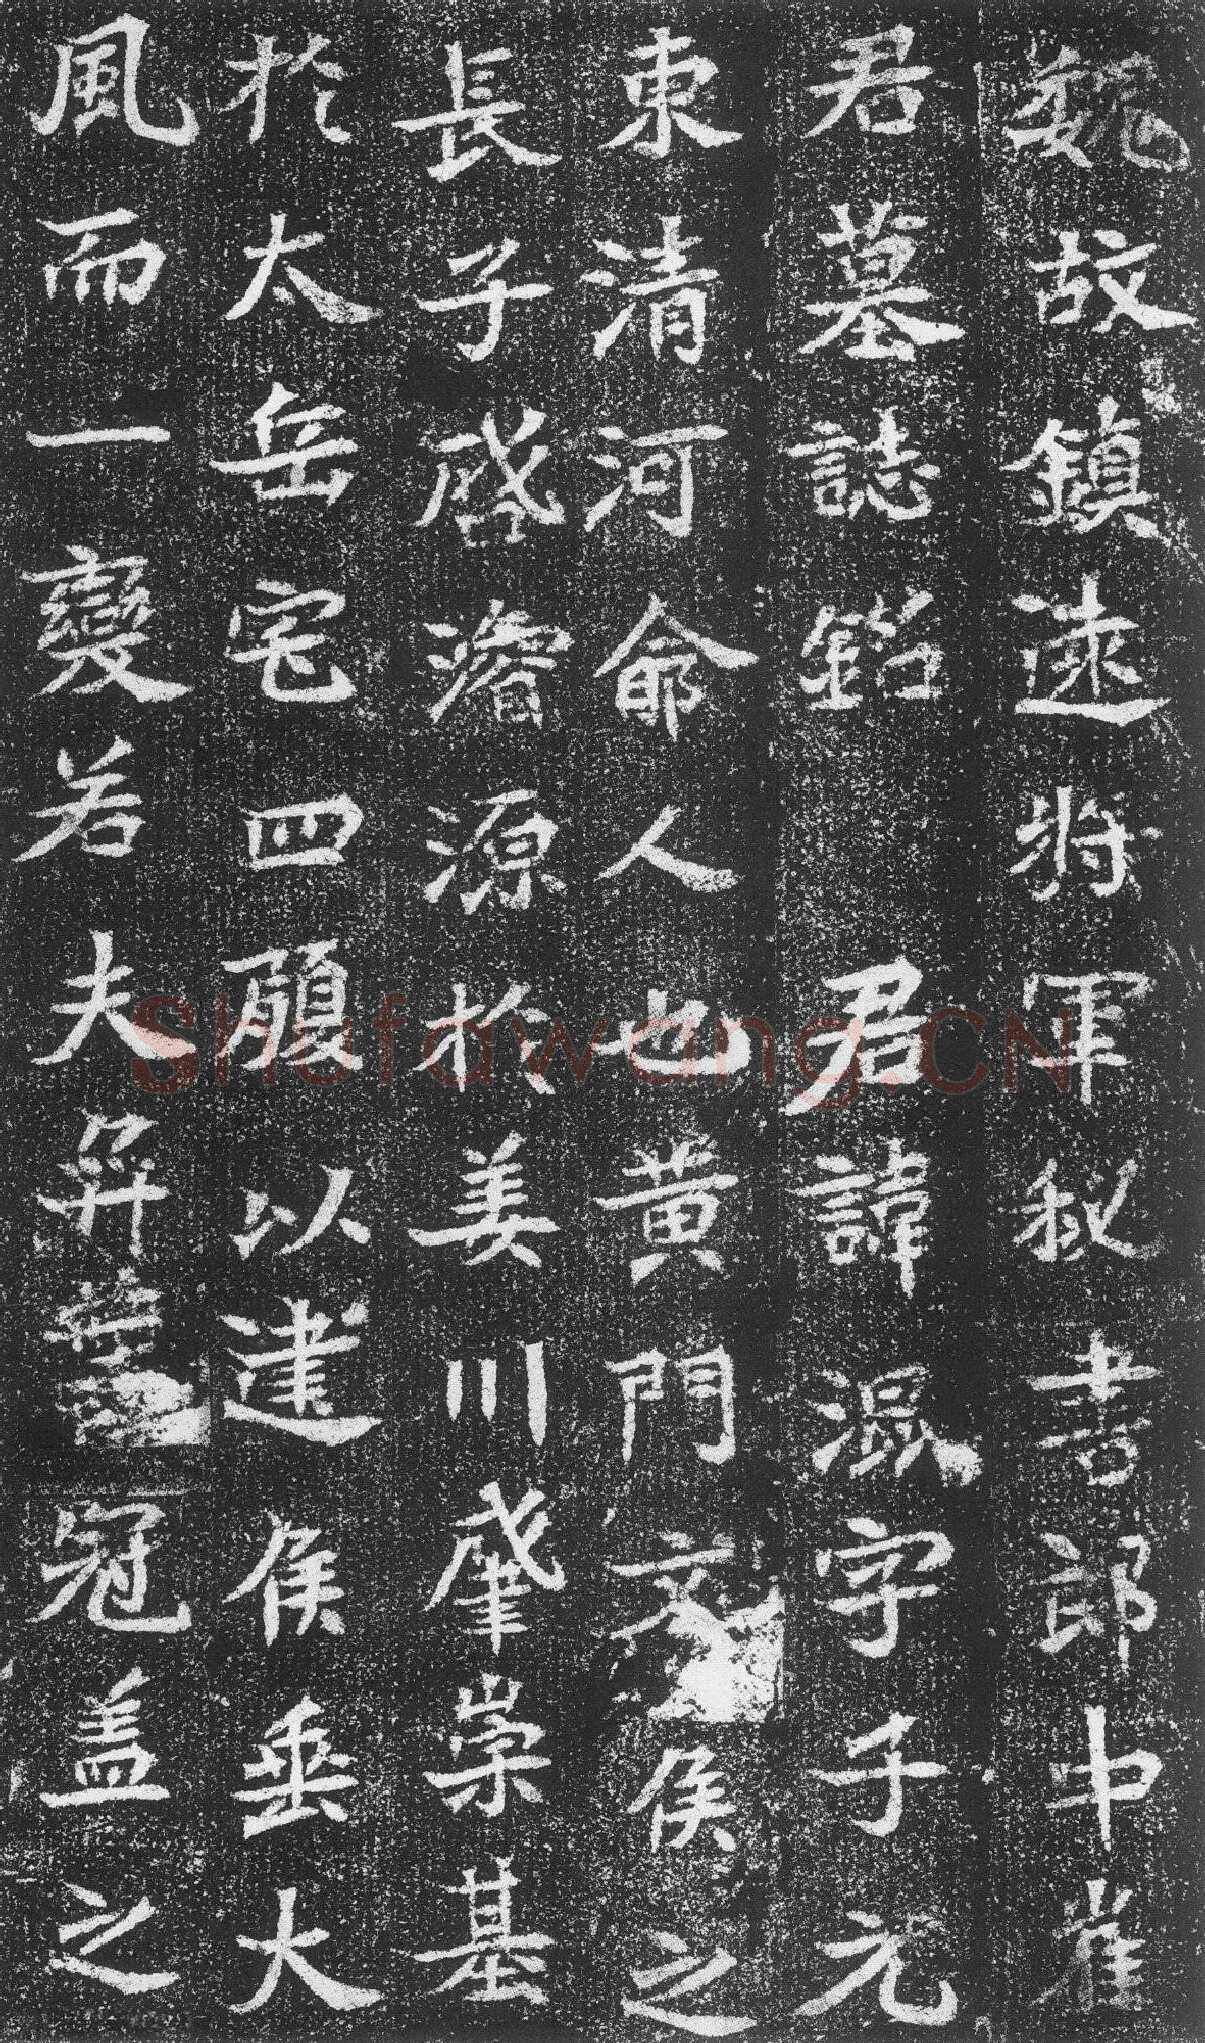 魏故鎮遠將軍秘書郎中崔
君墓誌銘　君諱混字子元
東清河俞人也黃門文侯之
長子啓濬源於姜川肇崇基
於太岳宅四履以建侯垂大
風而一變若夫冠盖之
shufawang.CN